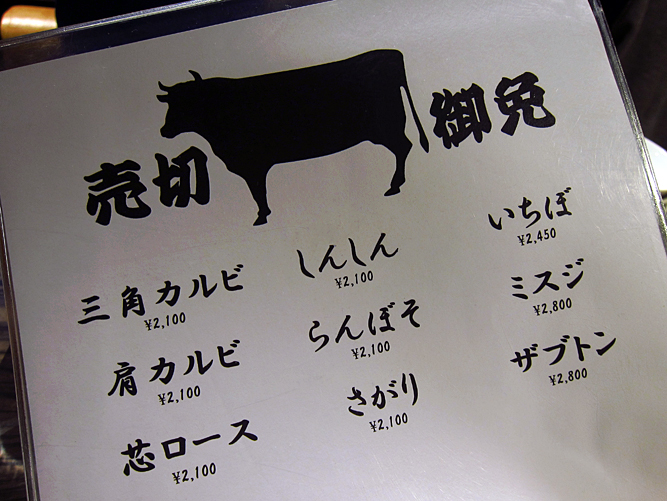 売切 御免
三角カルビ
¥2,100
肩カルビ
¥2,100
芯ロース
¥2,100
しんしん
¥2,100
らんぼそ
¥2,100
さがり
¥2,100
いちぼ
¥2,450
ミスジ
¥2,800
ザブトン
¥2,800